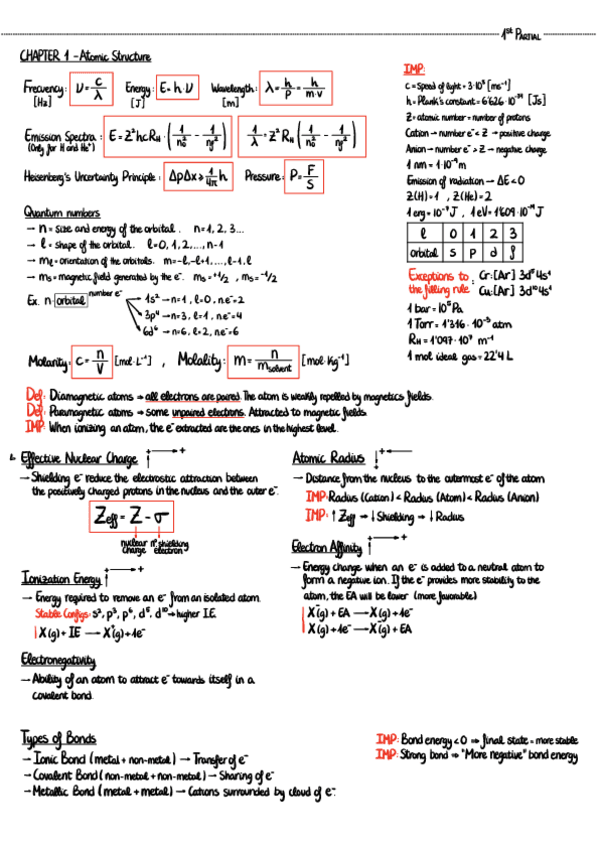 1st PARTIAL
CHAPTER 1 - Atomic Structure
Frecuency: ν = c/λ   Energy: E = h·ν   Wavelength: λ = h/p = h/m·v
[Hz]   [J]   [m]
Emission Spectra: E = Z²hcRH · (1/n₀² - 1/nf²)   1/λ = Z² RH (1/n₀² - 1/nf²)
(Only for H and He⁺)
Heisenberg's Uncertainty Principle: ΔpΔx ≥ 1/4π h   Pressure: P = F/S
IMP:
c = Speed of light = 3·10⁸ [ms⁻¹]
h = Plank's constant = 6'626·10⁻³⁴ [Js]
Z = atomic number = number of protons
Cation → number e⁻ < Z → positive charge
Anion → number e⁻ > Z → negative charge
1 nm = 1·10⁻⁹ m
Emission of radiation → ΔE < 0
Z(H) = 1 , Z(He) = 2
1 erg = 10⁻⁷ J , 1 eV = 1'609·10⁻¹⁹ J
l 0 1 2 3
orbital s p d f
Exceptions to the filling rule: Cr: [Ar] 3d⁵ 4s¹
Cu: [Ar] 3d¹⁰ 4s¹
1 bar = 10⁵ Pa
1 Torr = 1'316·10⁻³ atm
RH = 1'097·10⁷ m⁻¹
1 mol ideal gas = 22'4 L
Quantum numbers
→ n = size and energy of the orbital. n = 1, 2, 3...
→ l = shape of the orbital. l = 0, 1, 2, ..., n-1
→ ml = orientation of the orbitals. m = -l, -l+1, ..., l-1, l
→ ms = magnetic field generated by the e⁻. ms = +1/2 , ms = -1/2
Ex. n orbital number e⁻
1s² → n=1, l=0, ne⁻=2
3p⁴ → n=3, l=1, ne⁻=4
6d⁶ → n=6, l=2, ne⁻=6
Molarity: c = n/V [mol·L⁻¹] , Molality: m = n/msolvent [mol·Kg⁻¹]
Def: Diamagnetic atoms → all electrons are paired. The atom is weakly repelled by magnetics fields.
Def: Paramagnetic atoms → some unpaired electrons. Attracted to magnetic fields.
IMP: When ionizing an atom, the e⁻ extracted are the ones in the highest level.
Effective Nuclear Charge + +
→ Shielding e⁻ reduce the electrostic attraction between
the positively charged protons in the nucleus and the outer e⁻.
Zeff = Z - σ
nuclear charge   nº shielding electron
Ionization Energy + +
→ Energy required to remove an e⁻ from an isolated atom.
Stable Configs: s², p³, p⁶, d⁵, d¹⁰ → higher I.E.
X(g) + IE → X⁺(g) + 1e⁻
Electronegativity
→ Ability of an atom to attract e⁻ towards itself in a
covalent bond.
Atomic Radius + +
→ Distance from the nucleus to the outermost e⁻ of the atom
IMP: Radius (Cation) < Radius (Atom) < Radius (Anion)
IMP: ↑ Zeff → ↓ Shielding → ↓ Radius
Electron Affinity + +
→ Energy change when an e⁻ is added to a neutral atom to
form a negative ion. If the e⁻ provides more stability to the
atom, the EA will be lower (more favorable)
X⁻(g) + EA → X(g) + 1e⁻
X(g) + 1e⁻ → X⁻(g) + EA
Types of Bonds
→ Ionic Bond (metal + non-metal) → Transfer of e⁻
→ Covalent Bond (non-metal + non-metal) → Sharing of e⁻
→ Metallic Bond (metal + metal) → Cations surrounded by cloud of e⁻.
IMP: Bond energy < 0 ⇒ final state = more stable
IMP: Strong bond ⇒ "More negative" bond energy